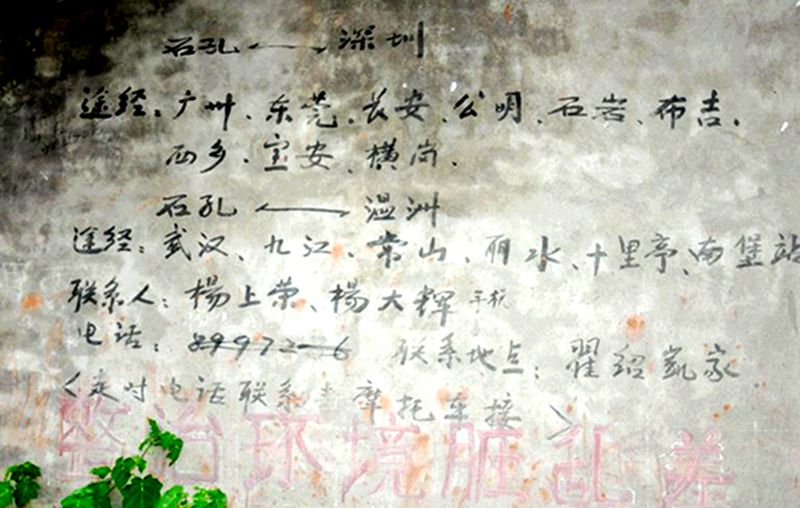 石孔——深圳
途经:广州、东莞、长安、公明、石岩、布吉、
西乡、宝安、横岗.
石孔——温洲
途经:武汉、九江、常山、丽水、十里亭、南堡站
联系人:楊上荣、楊大輝
电话: 联系地点:翟绍凯家
<走时电话联系 摩托车接>
整治环境脏乱差